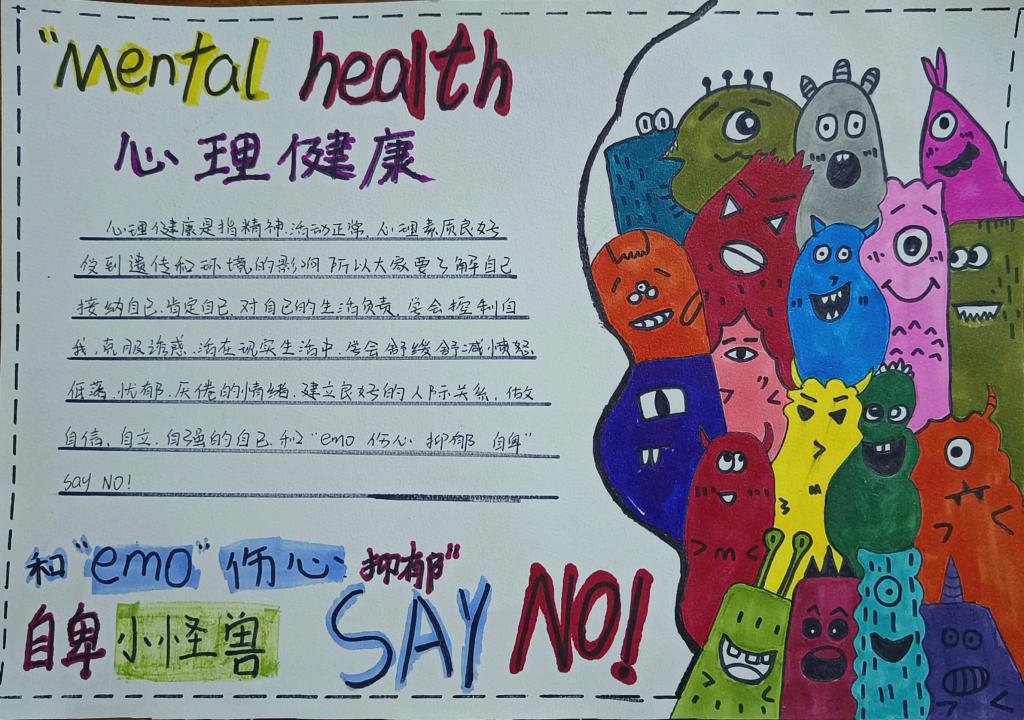 "Mental health
心理健康
心理健康是指精神.活动正常.心理素质良好
受到遗传和环境的影响所以大家要了解自己
接纳自己.肯定自己.对自己的生活负责.学会控制自
我.克服诱惑.活在现实生活中.学会舒缓舒减愤怒.
低落.忧郁.厌倦的情绪.建立良好的人际关系.做
自信.自立.自强的自己.和"emo 伤心 抑郁 自卑"
say NO!
和"emo"伤心 抑郁"
自卑小怪兽 SAY NO!